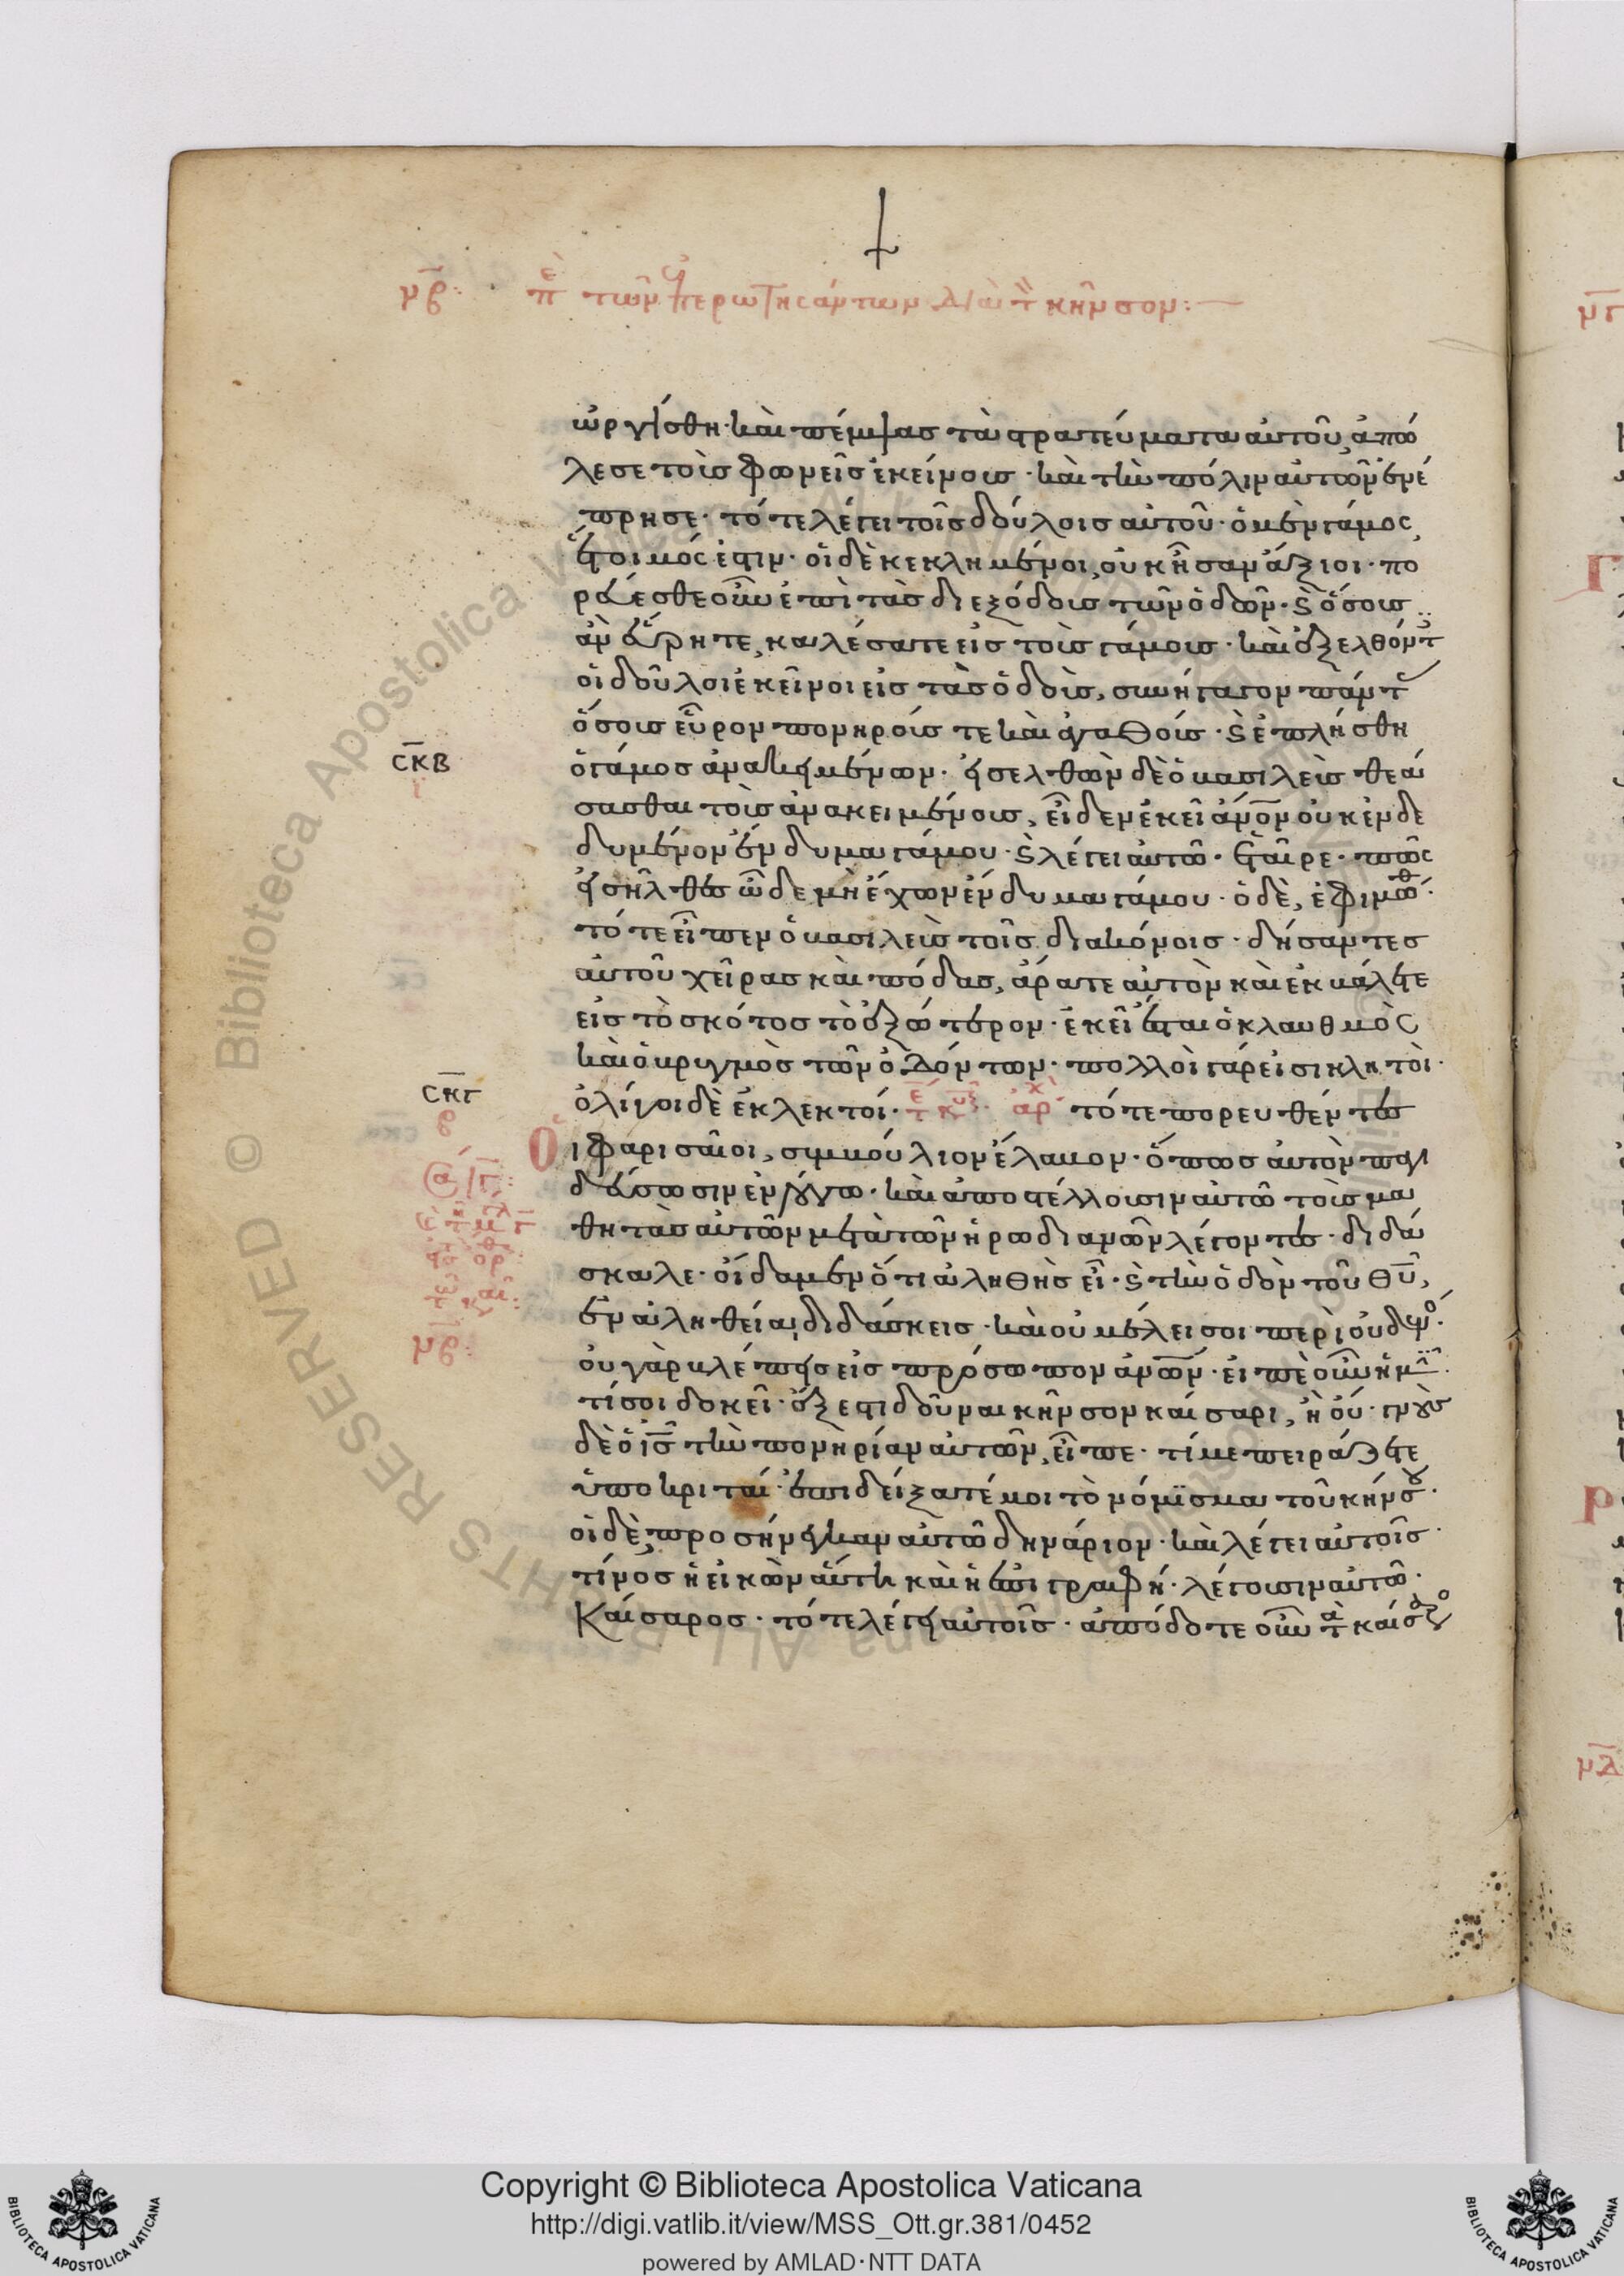 μβ: περὶ τῶν ἐπερωτησάντων διὰ τὸν κῆνσον:
ὠργίσθη· καὶ πέμψας τὰ στρατεύματα αὐτοῦ, ἀπώ
λεσε τοὺς φονεῖς ἐκείνους· καὶ τὴν πόλιν αὐτῶν ἐνέ
πρησε· τότε λέγει τοῖς δούλοις αὐτοῦ· ὁ μὲν γάμος
ἕτοιμός ἐστιν· οἱ δὲ κεκλημένοι, οὐκ ἦσαν ἄξιοι· πο
ρεύεσθε οὖν ἐπὶ τὰς διεξόδους τῶν ὁδῶν· ϛ ὅσους
ἂν εὕρητε, καλέσατε εἰς τοὺς γάμους· καὶ ἐξελθόντ
οἱ δοῦλοι ἐκεῖνοι εἰς τὰς ὁδοὺς, συνήγαγον πάντ
ὅσους εὗρον πονηρούς τε καὶ ἀγαθούς· ϛ ἐπλήσθη
σκβ
ι
ὁ γάμος ἀνακειμένων· εἰσελθὼν δὲ ὁ βασιλεὺς θεά
σασθαι τοὺς ἀνακειμένους, εἶδεν ἐκεῖ ἄνον οὐκ ἐνδε
δυμένον ἔνδυμα γάμου· ϛ λέγει αὐτῶ· ἑταῖρε· πῶς
εἰσῆλθες ὧδε μὴ ἔχων ἔνδυμα γάμου· ὁ δὲ, ἐφιμώθ·
τότε εἶπεν ὁ βασιλεὺς τοῖς διακόνοις· δήσαντες
αὐτοῦ χεῖρας καὶ πόδας, ἄρατε αὐτὸν καὶ ἐκβάλετε
εἰς τὸ σκότος τὸ ἐξώτερον· ἐκεῖ ἔσται ὁ κλαυθμὸς
καὶ ὁ βρυγμὸς τῶν ὀδόντων· πολλοὶ γάρ εἰσι κλητοὶ·
σκγ
β
ὀλίγοι δὲ ἐκλεκτοί· τε κυ ἀρχ τότε πορευθέντες
Οἱ φαρισαῖοι, συμβούλιον ἔλαβον· ὅπως αὐτὸν παγι
δεύσωσιν ἐν λόγω· καὶ ἀποστέλλουσιν αὐτῶ τοὺς μα
θητὰς αὐτῶν μετὰ τῶν ἡρωδιανῶν λέγοντες· διδά
σκαλε· οἴδαμεν ὅτι ἀληθὴς εἶ· ϛ τὴν ὁδὸν τοῦ θυ,
ἐν ἀληθεία, διδάσκεις· καὶ οὐ μέλει σοι περὶ οὐδενό·
μβ:
οὐ γὰρ βλέπεις εἰς πρόσωπον ἀνων· εἰπὲ οὖν ἡμῖν·
τί σοι δοκεῖ· ἔξεστι δοῦναι κῆνσον καίσαρι, ἢ οὔ· γνοὺς
δὲ ὁ ις τὴν πονηρίαν αὐτῶν, εἶπε· τί με πειράζετε
ὑποκριταί· ἐπιδείξατέ μοι τὸ νόμισμα τοῦ κήνσου·
οἱ δὲ, προσήνεγκαν αὐτῶ δηνάριον· καὶ λέγει αὐτοῖς·
τίνος ἡ εἰκὼν αὕτη καὶ ἡ ἐπιγραφή· λέγουσιν αὐτῶ·
Καίσαρος· τότε λέγει αὐτοῖς· ἀπόδοτε οὖν τὰ καίσαρο
© Biblioteca Apostolica Vaticana ALL RIGHTS RESERVED
Copyright © Biblioteca Apostolica Vaticana
http://digi.vatlib.it/view/MSS_Ott.gr.381/0452
powered by AMLAD·NTT DATA
BIBLIOTECA APOSTOLICA VATICANA
BIBLIOTECA APOSTOLICA VATICANA